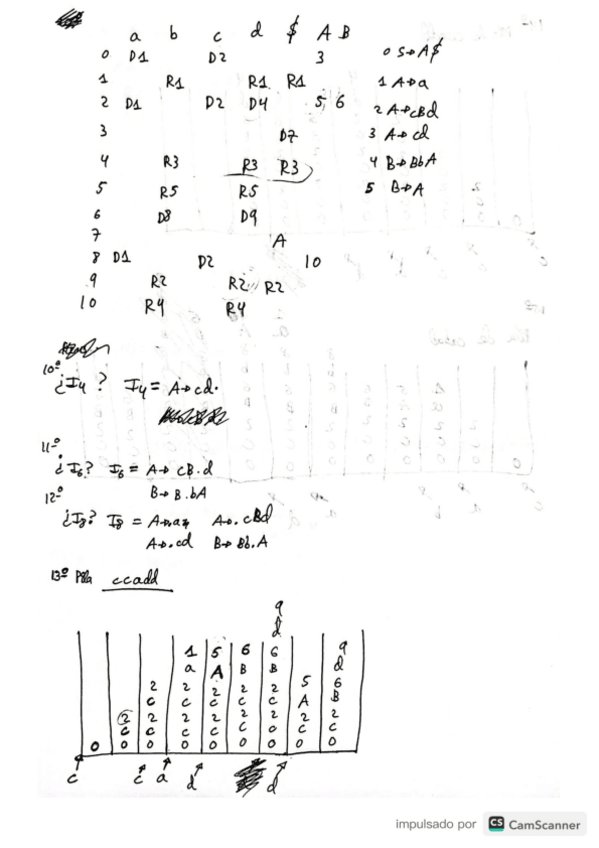 a b c d $ A B
0 D1 D2 3
1 R1 R1 R1
2 D1 D2 D4 5 6
3 D7
4 R3 R3 R3
5 R5 R5
6 D8 D9
7 A
8 D1 D2 10
9 R2 R2 R2
10 R4 R4
0 S→A$
1 A→a
2 A→cBd
3 A→cd
4 B→BbA
5 B→A
10º
¿I4? I4 = A→cd.
11º
¿I6? I6 = A→ cB.d
B→ B.bA
12º
¿I8? I8 = A→.a A→.cBd
A→.cd B→ Bb.A
13º Pila ccadd
9
d
1 5 6 6 9
a A B B d
2 2 2 2 2 5 6
c c c c c A B
2 2 2 2 2 2 2 2
c c c c c c c c
0 0 0 0 0 0 0 0 0
c c a d d
impulsado por CS CamScanner